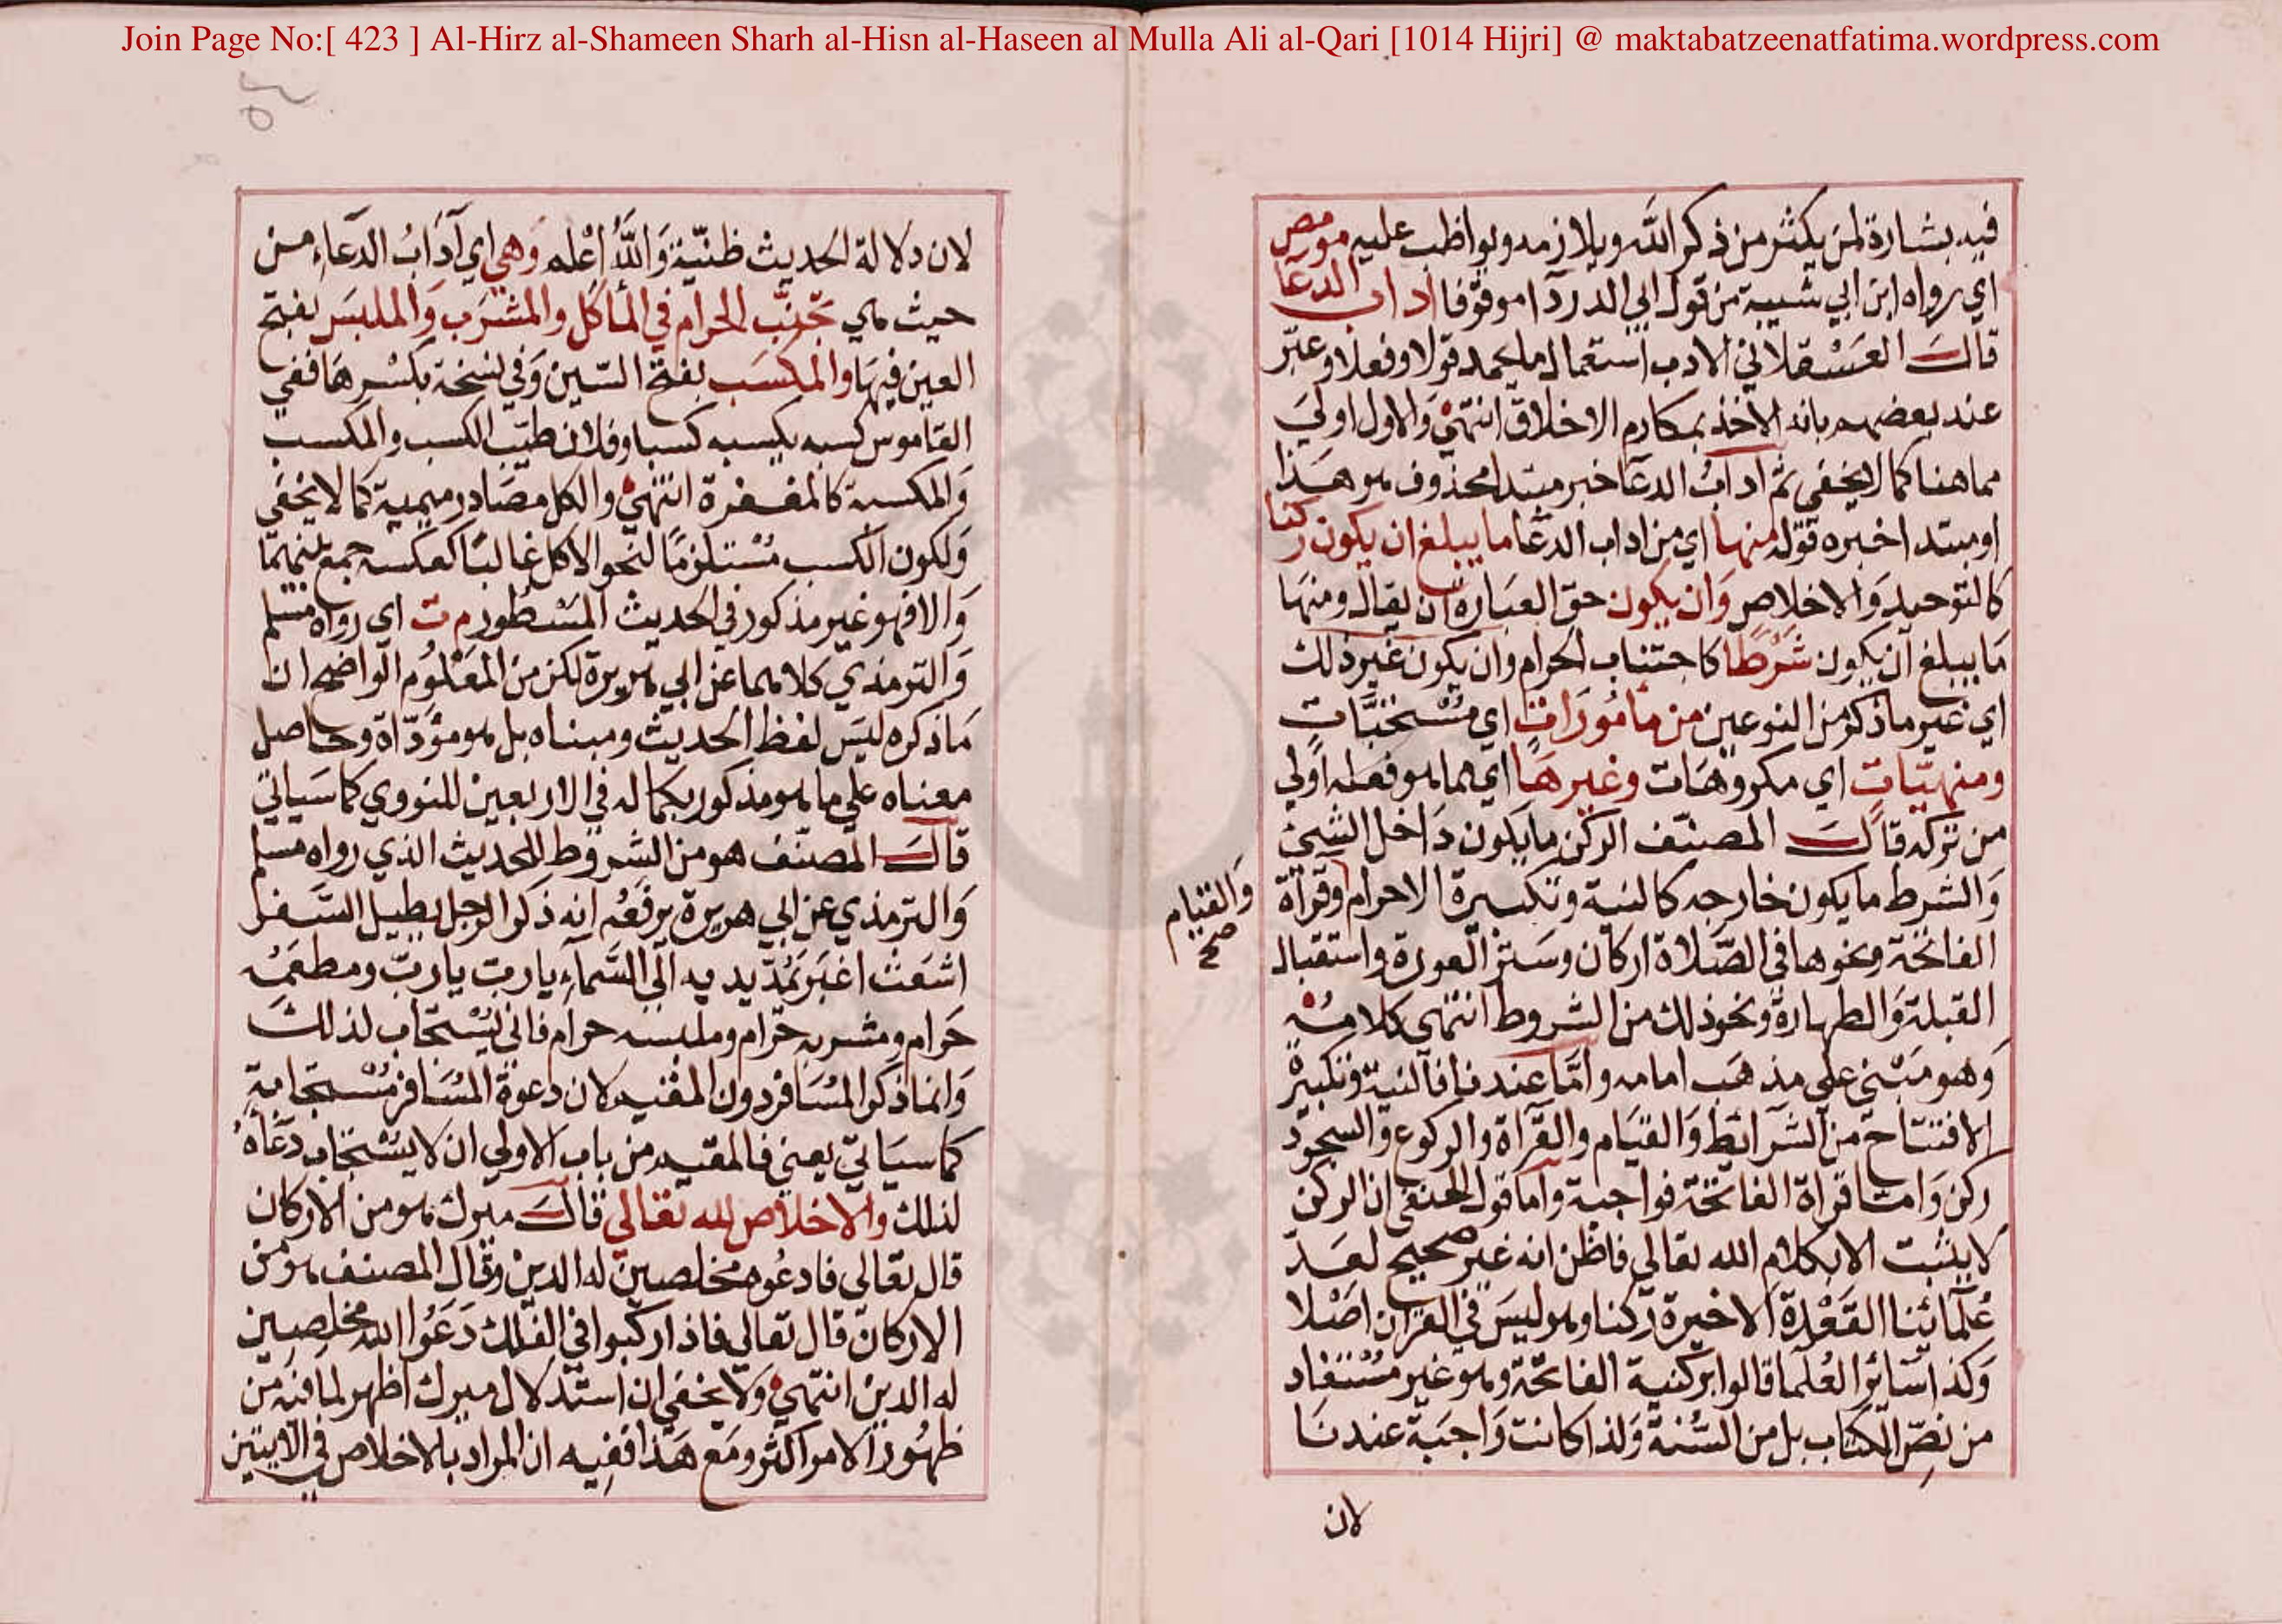 Join Page No:[ 423 ] Al-Hirz al-Shameen Sharh al-Hisn al-Haseen al Mulla Ali al-Qari [1014 Hijri] @ maktabatzeenatfatima.wordpress.com
فيه بشارة لمن يكثر من ذكر الله ويلازمه ويواظب عليه مومص
اي رواه ابن ابي شيبة من قول ابي الدردا موقوفا اداب الدعا
قال العسقلاني الادب استعمال ما يحمد قولا وفعلا وعبّر
عنه بعضهم بانه الاخذ بمكارم الاخلاق انتهى والاول اولي
مما هنا كما لا يخفى ثم اداب الدعا خبر مبتدا محذوف هو هذا
او مبتدا خبره قوله منها اي من اداب الدعا ما يبلغ ان يكون ركنا
كالتوحيد والاخلاص وان يكون حق العبارة ان يقال ومنها
ما يبلغ ان يكون شرطا كاجتناب الحرام وان يكون غير ذلك
اي غير ما ذكر من النوعين من مامورات اي مستحبات
ومنهيات اي مكروهات وغيرها اي مما هو فعله اولي
من تركه قال المصنف الركن ما يكون داخل الشيئ
والشرط ما يكون خارجه كالنية وتكبيرة الاحرام وقراة
والقيام صح
الفاتحة ونحوها في الصلاة اركان وستر العورة واستقبال
القبلة والطهارة ونحو ذلك من الشروط انتهى كلامه
وهو مبني على مذهب امامه واما عندنا فالنية وتكبيرة
الافتتاح من الشرائط والقيام والقراة والركوع والسجود
ركن واما قراة الفاتحة فواجبة واما قول الحنفي ان الركن
لا يثبت الا بكلام الله تعالى فاظن انه غير صحيح لعد
علمائنا القعدة الاخيرة ركنا وهو ليس في القران اصلا
وكذا سائر العلما قالوا بركنية الفاتحة وهو غير مستفاد
من نص الكتاب بل من السنة ولذا كانت واجبة عندنا
لان
لان دلالة الحديث ظنية والله اعلم وهي اي آداب الدعاء من
حيث هي تجنب الحرام في الماكل والمشرب والملبس بفتح
العين فيها والمكسب بفتح السين وفي نسخة بكسرها ففي
القاموس كسبه يكسبه كسبا وفلان طيب الكسب والمكسب
والمكسبة كالمغفرة انتهى والكل مصادر ميمية كما لا يخفى
ولكون الكسب مستلزما لنحو الاكل غالبا كعكسه جمع بينهما
والا فهو غير مذكور في الحديث المسطور م ت اي رواه مسلم
والترمذي كلاهما عن ابي هريرة لكن من المعلوم الواضح ان
ما ذكره ليس لفظ الحديث ومبناه بل هو مؤداة وحاصل
معناه علي ما هو مذكور بكماله في الاربعين للنووي كما سياتي
قال المصنف هو من الشروط للحديث الذي رواه مسلم
والترمذي عن ابي هريرة يرفعه انه ذكر الرجل يطيل السفر
اشعث اغبر يمد يديه الى السماء يا رب يا رب ومطعمه
حرام ومشربه حرام وملبسه حرام فاني يستجاب لذلك
وانما ذكر المسافر دون المقيم لان دعوة المسافر مستجابة
كما سياتي يعني فالمقيم من باب الاولي ان لا يستجاب دعاه
لذلك والاخلاص لله تعالي قال ميرك هو من الاركان
قال تعالى فادعوه مخلصين له الدين وقال المصنف هو من
الاركان قال تعالي فاذا ركبوا في الفلك دعوا الله مخلصين
له الدين انتهى ولا يخفى ان استدلال ميرك اظهر لما فيه من
ظهور الامر اكثر ومع هذا ففيه ان المراد بالاخلاص في الآيتين